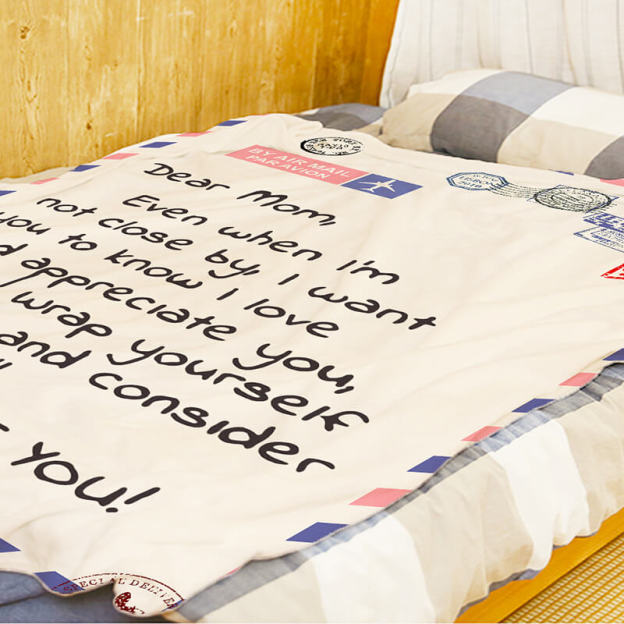 BY AIR MAIL
PAR AVION
Dear Mom,
Even when I'm
not close by, I want
you to know I love
appreciate you,
wrap yourself
and consider
YOU!
SPECIAL DELIVERY